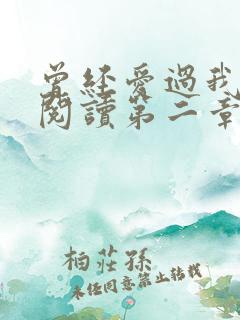 曾經愛過我
閱讀第二章
柏莊孫
未经同意禁止转载